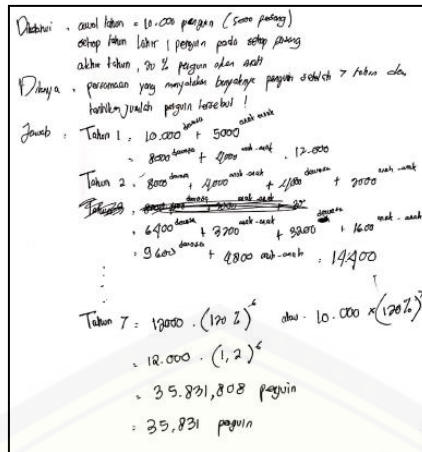 Diketahui : awal tahun = 10.000 penguin (5000 pasang)
setiap tahun lahir 1 penguin pada setiap pasang
akhir tahun, 20% penguin akan mati
Ditanya : persamaan yang menyatakan banyaknya penguin setelah 7 tahun dan
tentukan jumlah penguin tersebut !
Jawab : Tahun 1 : 10.000 dewasa + 5000 anak-anak
= 8000 dewasa + 4000 anak-anak = 12.000
Tahun 2 : 8000 dewasa + 4000 anak-anak + 4000 dewasa + 2000 anak-anak
= 6400 dewasa + 3200 anak-anak + 3200 dewasa + 1600 anak-anak
= 9600 dewasa + 4800 anak-anak = 14400
Tahun 7 = 12000 . (120%)^6 atau 10.000 x (120%)^7
= 12.000 . (1,2)^6
= 35.831,808 penguin
= 35,831 penguin